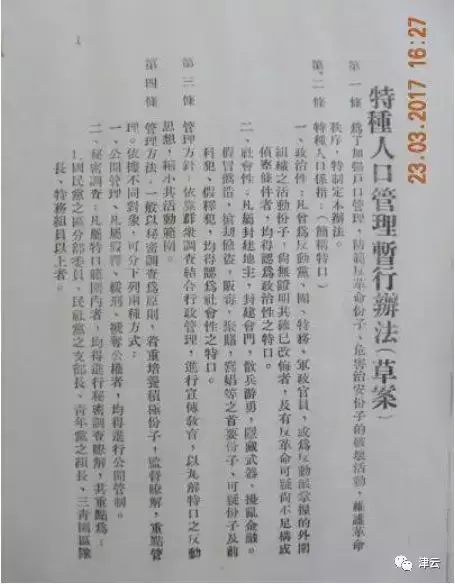 特種人口管理暫行辦法(草案)
第一條 爲了加強戶口管理,防範反革命份子、危害治安份子的破壞活動,維護革命
秩序,特制定本辦法。
第二條 特種人口係指:(簡稱特口)
一、政治性:凡曾爲反動黨、團、特務、軍政官員,或爲反動派掌握的外圍
組織之活動份子,尙無證明其確已改悔者,及有反革命可疑尙不足構成
偵察條件者,均得認爲政治性之特口。
二、社會性:凡屬封建地主,封建會門,散兵游勇,隱藏武器、擾亂金融。
假冒僞造,搶刼偷盜,販毒,聚賭,窩娼等之首要份子、可疑份子及前
科犯、假釋犯,均得認爲社會性之特口。
第三條 管理方針:依靠群衆調查結合行政管理,進行宣傳敎育,以瓦解特口之反動
思想,縮小其活動範圍。
第四條 管理方法:一般以秘密調查爲原則,着重培養積極份子,監督瞭解,重點管
理。依據不同對象,可分下列兩種方式:
一、公開管理、凡屬假釋、緩刑、褫奪公權者,均得進行公開管制。
二、秘密調查:凡屬特口範圍內者,均得進行秘密調查瞭解,其重點爲:
1.國民黨之區分部委員、民社黨之支部長、青年黨之組長、三青團區隊
長、特務組員以上者。
23.03.2017 16:27
津云